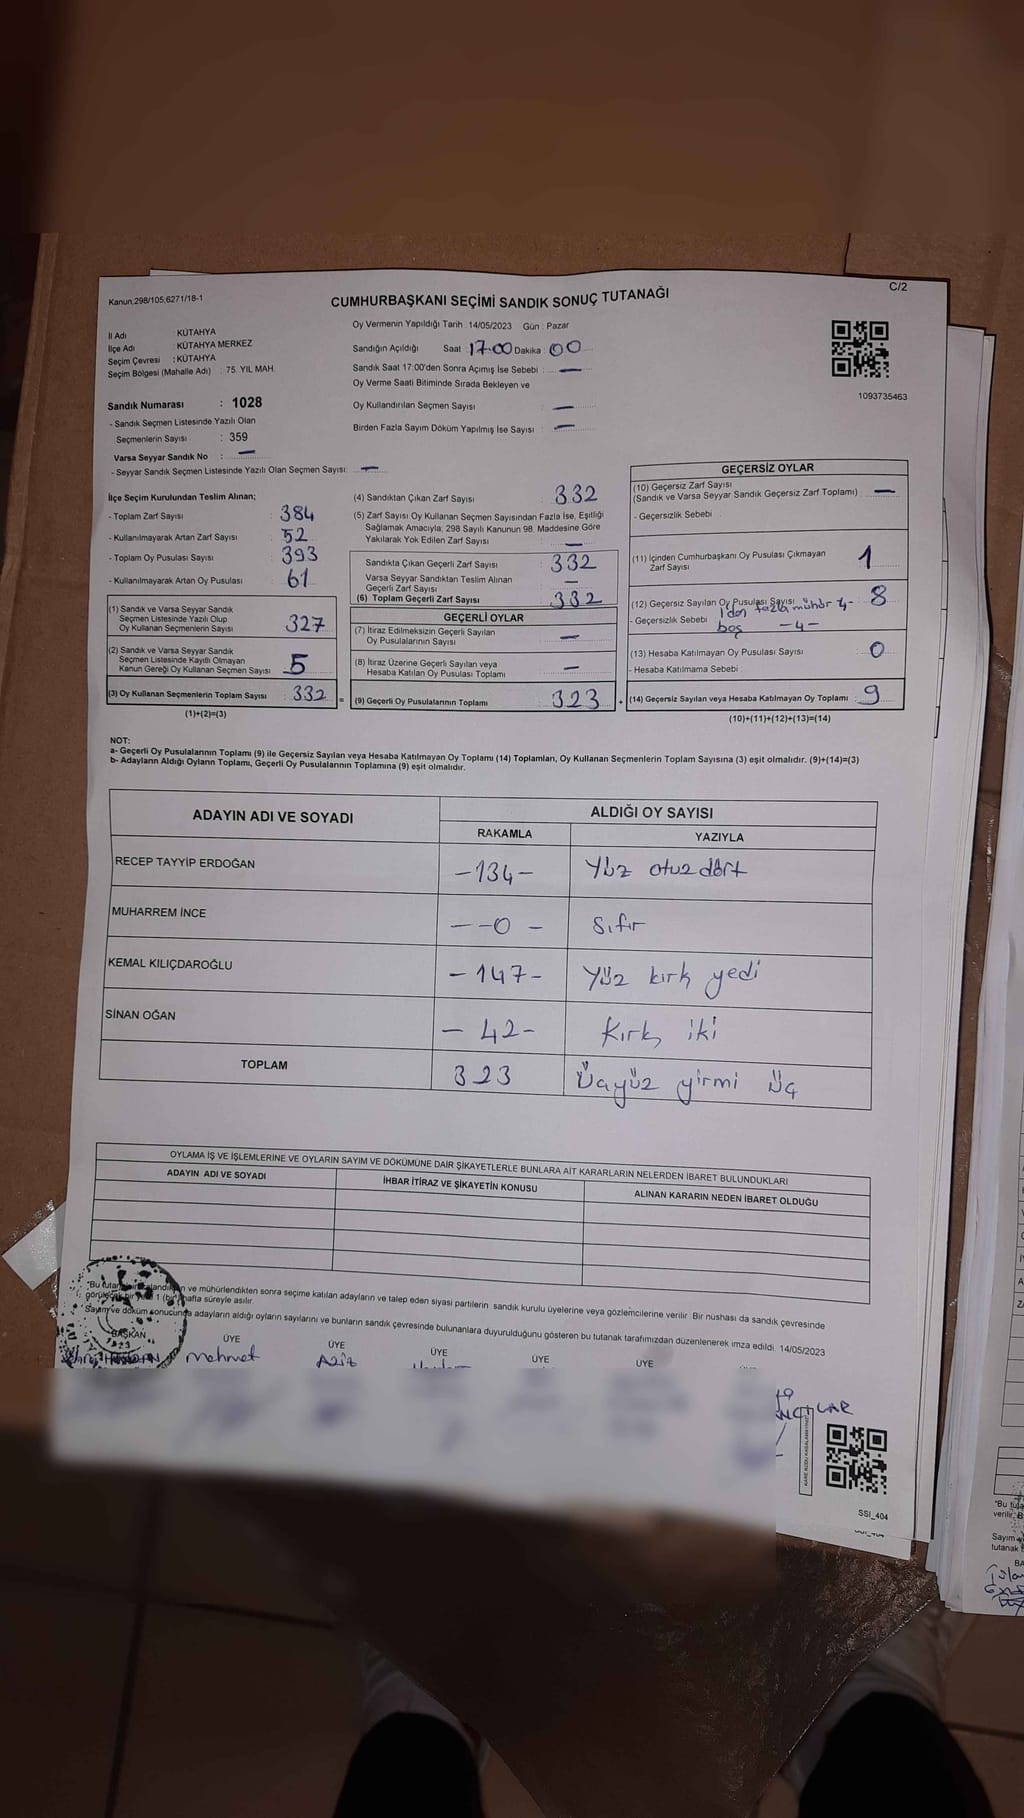 Kanun;298/105;6271/18-1
C/2
CUMHURBAŞKANI SEÇİMİ SANDIK SONUÇ TUTANAĞI
İl Adı KÜTAHYA
İlçe Adı : KÜTAHYA MERKEZ
Seçim Çevresi : KÜTAHYA
Seçim Bölgesi (Mahalle Adı) : 75. YIL MAH.
Sandık Numarası : 1028
- Sandık Seçmen Listesinde Yazılı Olan
Seçmenlerin Sayısı : 359
Varsa Seyyar Sandık No : —
- Seyyar Sandık Seçmen Listesinde Yazılı Olan Seçmen Sayısı: —
Oy Vermenin Yapıldığı Tarih : 14/05/2023 Gün : Pazar
Sandığın Açıldığı Saat 17:00 Dakika : 00
Sandık Saat 17:00'den Sonra Açımış İse Sebebi : —
Oy Verme Saati Bitiminde Sırada Bekleyen ve
Oy Kullandırılan Seçmen Sayısı : —
Birden Fazla Sayım Döküm Yapılmış İse Sayısı : —
1093735463
İlçe Seçim Kurulundan Teslim Alınan;
- Toplam Zarf Sayısı : 384
- Kullanılmayarak Artan Zarf Sayısı : 52
- Toplam Oy Pusulası Sayısı : 393
- Kullanılmayarak Artan Oy Pusulası : 61
(1) Sandık ve Varsa Seyyar Sandık
Seçmen Listesinde Yazılı Olup
Oy Kullanan Seçmenlerin Sayısı : 327
(2) Sandık ve Varsa Seyyar Sandık
Seçmen Listesinde Kayıtlı Olmayan
Kanun Gereği Oy Kullanan Seçmen Sayısı : 5
(3) Oy Kullanan Seçmenlerin Toplam Sayısı : 332
(1)+(2)=(3)
(4) Sandıktan Çıkan Zarf Sayısı : 332
(5) Zarf Sayısı Oy Kullanan Seçmen Sayısından Fazla İse, Eşitliği
Sağlamak Amacıyla, 298 Sayılı Kanunun 98. Maddesine Göre
Yakılarak Yok Edilen Zarf Sayısı : —
Sandıkta Çıkan Geçerli Zarf Sayısı : 332
Varsa Seyyar Sandıktan Teslim Alınan
Geçerli Zarf Sayısı : —
(6) Toplam Geçerli Zarf Sayısı : 332
GEÇERLİ OYLAR
(7) İtiraz Edilmeksizin Geçerli Sayılan
Oy Pusulalarının Sayısı : —
(8) İtiraz Üzerine Geçerli Sayılan veya
Hesaba Katılan Oy Pusulası Toplamı : —
= (9) Geçerli Oy Pusulalarının Toplamı : 323
GEÇERSİZ OYLAR
(10) Geçersiz Zarf Sayısı
(Sandık ve Varsa Seyyar Sandık Geçersiz Zarf Toplamı) : —
- Geçersizlik Sebebi :
(11) İçinden Cumhurbaşkanı Oy Pusulası Çıkmayan
Zarf Sayısı : 1
(12) Geçersiz Sayılan Oy Pusulası Sayısı : 8
- Geçersizlik Sebebi : 1'den fazla mühür 4-
boş -4-
(13) Hesaba Katılmayan Oy Pusulası Sayısı : 0
- Hesaba Katılmama Sebebi :
+ (14) Geçersiz Sayılan veya Hesaba Katılmayan Oy Toplamı : 9
(10)+(11)+(12)+(13)=(14)
NOT:
a- Geçerli Oy Pusulalarının Toplamı (9) ile Geçersiz Sayılan veya Hesaba Katılmayan Oy Toplamı (14) Toplamları, Oy Kullanan Seçmenlerin Toplam Sayısına (3) eşit olmalıdır. (9)+(14)=(3)
b- Adayların Aldığı Oyların Toplamı, Geçerli Oy Pusulalarının Toplamına (9) eşit olmalıdır.
ADAYIN ADI VE SOYADI ALDIĞI OY SAYISI
RAKAMLA YAZIYLA
RECEP TAYYİP ERDOĞAN -134- Yüz otuz dört
MUHARREM İNCE --0- Sıfır
KEMAL KILIÇDAROĞLU -147- Yüz kırk yedi
SİNAN OĞAN -42- Kırk iki
TOPLAM 323 Üçyüz yirmi üç
OYLAMA İŞ VE İŞLEMLERİNE VE OYLARIN SAYIM VE DÖKÜMÜNE DAİR ŞİKAYETLERLE BUNLARA AİT KARARLARIN NELERDEN İBARET BULUNDUKLARI
ADAYIN ADI VE SOYADI İHBAR İTİRAZ VE ŞİKAYETİN KONUSU ALINAN KARARIN NEDEN İBARET OLDUĞU
"Bu ve mühürlendikten sonra seçime katılan adayların ve talep eden siyasi partilerin sandık kurulu üyelerine veya gözlemcilerine verilir. Bir nüshası da sandık çevresinde
hafta süreyle asılır.
Sayım ve döküm sonucunda adayların aldığı oyların sayılarını ve bunların sandık çevresinde bulunanlara duyurulduğunu gösteren bu tutanak tarafımızdan düzenlenerek imza edildi. 14/05/2023
BAŞKAN ÜYE ÜYE ÜYE ÜYE ÜYE
Mehmet Aziz
SSI_404